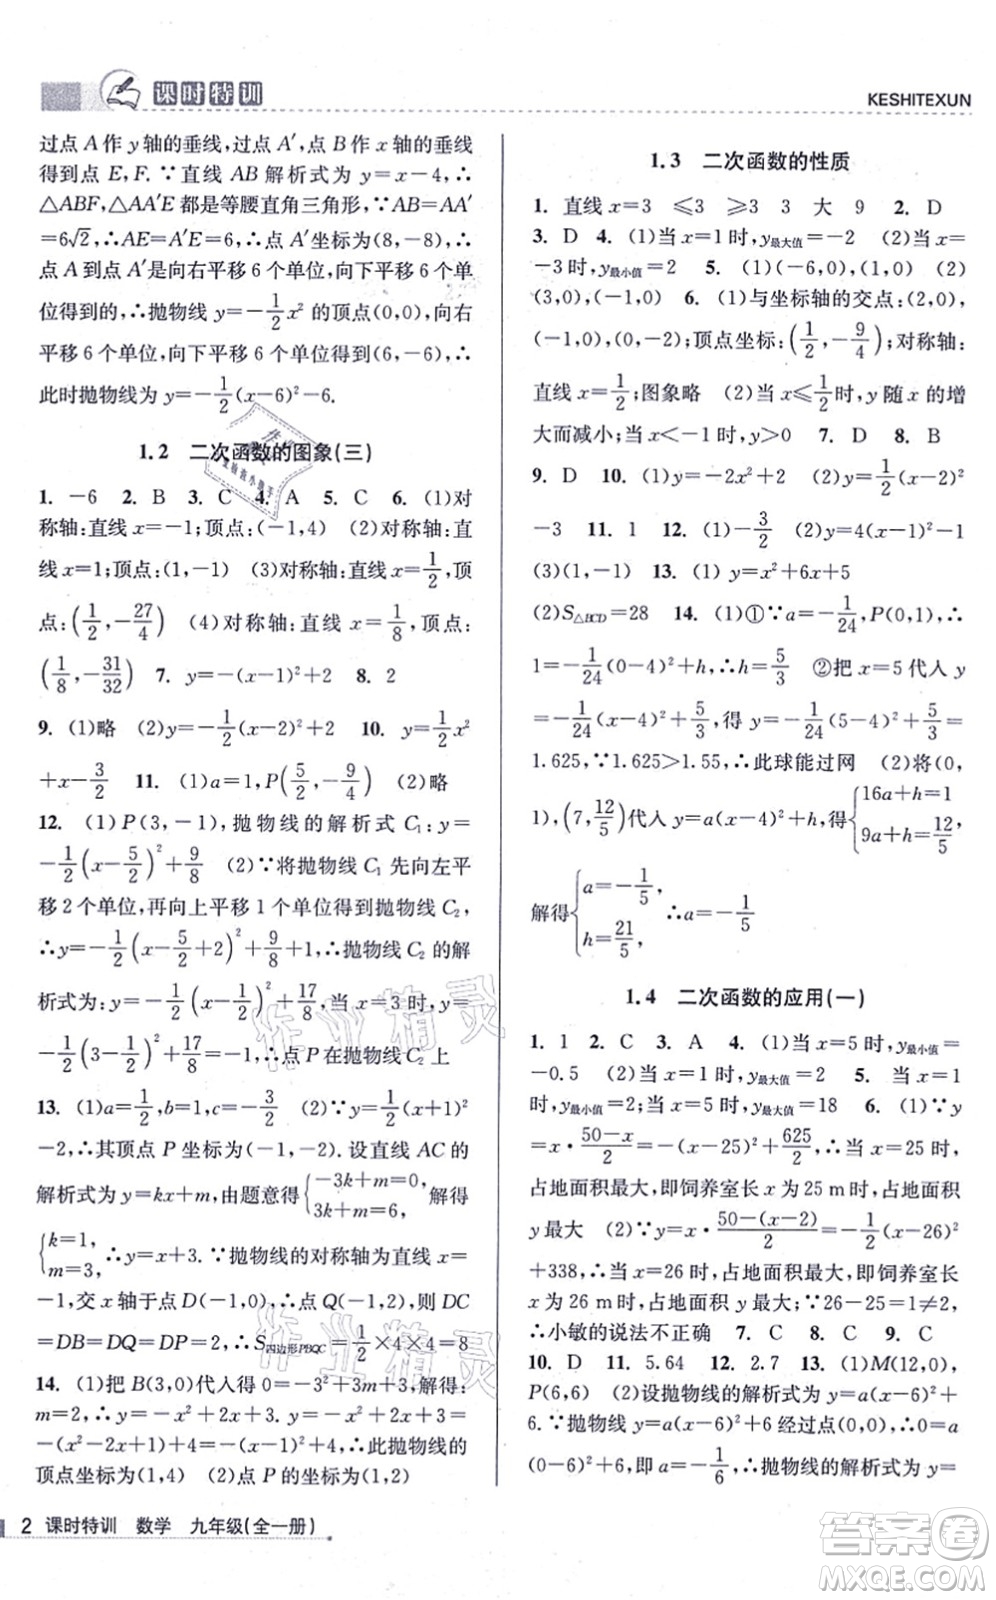 课时特训
KESHITEXUN
过点 A 作 y 轴的垂线,过点 A′,点 B 作 x 轴的垂线
交于点 E,F.∵直线 AB 解析式为 y=x-4,∴
△ABF,△AA′E 都是等腰直角三角形,∵AB=AA′
=6√2,∴AE=A′E=6,∴A′坐标为(8,-8),∴
点 A 到点 A′是向右平移 6 个单位,向下平移 6 个单
位得到的,∴抛物线 y=-1/2x² 的顶点(0,0),向右
平移 6 个单位,向下平移 6 个单位得到(6,-6),∴
此时抛物线为 y=-1/2(x-6)²-6.
1.2 二次函数的图象(三)
1. -6 2. B 3. C 4. A 5. C 6. (1)对
称轴:直线 x=-1;顶点:(-1,4) (2)对称轴:直
线 x=1;顶点:(1,-1) (3)对称轴:直线 x=1/2,顶
点:(1/2,-27/4) (4)对称轴:直线 x=1/8,顶点:
(1/8,-31/32) 7. y=-(x-1)²+2 8. 2
9. (1)略 (2)y=-1/2(x-2)²+2 10. y=1/2x²
+x-3/2 11. (1)a=1,P(5/2,-9/4) (2)略
12. (1)P(3,-1),抛物线的解析式 C₁:y=
-1/2(x-5/2)²+9/8 (2)∵将抛物线 C₁ 先向左平
移 2 个单位,再向上平移 1 个单位得到抛物线 C₂,
∴y=-1/2(x-5/2+2)²+9/8+1,∴抛物线 C₂ 的解
析式为:y=-1/2(x-1/2)²+17/8,当 x=3 时,y=
-1/2(3-1/2)²+17/8=-1,∴点 P 在抛物线 C₂ 上
13. (1)a=1/2,b=1,c=-3/2 (2)∵y=1/2(x+1)²
-2,∴其顶点 P 坐标为(-1,-2).设直线 AC 的
解析式为 y=kx+m,由题意得{-3k+m=0, 3k+m=6, 解得
{k=1, m=3, ∴y=x+3.∵抛物线的对称轴为直线 x=
-1,交 x 轴于点 D(-1,0),∴点 Q(-1,2),则 DC
=DB=DQ=DP=2,∴S四边形PBQC=1/2×4×4=8
14. (1)把 B(3,0)代入得 0=-3²+3m+3,解得:
m=2,∴y=-x²+2x+3=
-(x²-2x+1-1)+3=-(x-1)²+4,此抛物线的
顶点坐标为(1,4) (2)点 P 的坐标为(1,2)
1.3 二次函数的性质
1. 直线 x=3 ≤3 ≥3 3 大 9 2. D
3. D 4. (1)当 x=1 时,y最大值=-2 (2)当 x=
-3 时,y最小值=2 5. (1)(-6,0),(1,0) (2)
(3,0),(-1,0) 6. (1)与坐标轴的交点:(2,0),
(-1,0),(0,-2);顶点坐标:(1/2,-9/4);对称轴:
直线 x=1/2;图象略 (2)当 x≤1/2时,y 随 x 的增
大而减小;当 -1<x<2 时,y<0 7. D 8. C
9. D 10. (1)y=-2x²+4x (2)
-3 11. 1 12. (1)-3/2 (2)y=4(x-1)²-1
(3)(1,-1) 13. (1)y=x²+6x+5
(2)S△BCD=28 14. (1)①∵a=-1/24,P(0,1),∴
1=-1/24(0-4)²+h,∴h=5/3 ②把 x=5 代入 y
=-1/24(x-4)²+5/3,得 y=-1/24(5-4)²+5/3=
1.625,∵1.625>1.55,∴此球能过网 (2)将(0,
1),(7,12/5)代入 y=a(x-4)²+h,得{16a+h=1 9a+h=12/5,
解得{a=-1/5, h=21/5, ∴a=-1/5
1.4 二次函数的应用(一)
1. 1 2. C 3. A 4. (1)当 x=5 时,y最小值=
-0.5 (2)当 x=1时,y最大值=2 5. 当 x=1 时,
y最小值=2;当 x=5 时,y最大值=18 6. (1)∵y
=x·(50-x)/2=-1/2(x-25)²+625/2,∴当 x=25 时,
占地面积最大,即饲养室长 x 为 25 m 时,占地面积
y 最大 (2)∵y=x·(50-(x-2))/2=-1/2(x-26)²
+338,∴当 x=26 时,占地面积最大,即饲养室长
x 为 26 m 时,占地面积最大;∵26-25=1≠2,
∴小敏的说法不正确 7. C 8. C 9. C
10. D 11. 5.64 12. 2.7 13. (1)M(12,0),
P(6,6) (2)设抛物线的解析式为 y=a(x-6)²+
6.∵抛物线 y=a(x-6)²+6 经过点(0,0),∴0=a
(0-6)²+6,即 a=-1/6,∴抛物线的解析式为 y=
2 课时特训 数学 九年级(全一册)
作业精灵
作业精灵
答案
MXQE.COM